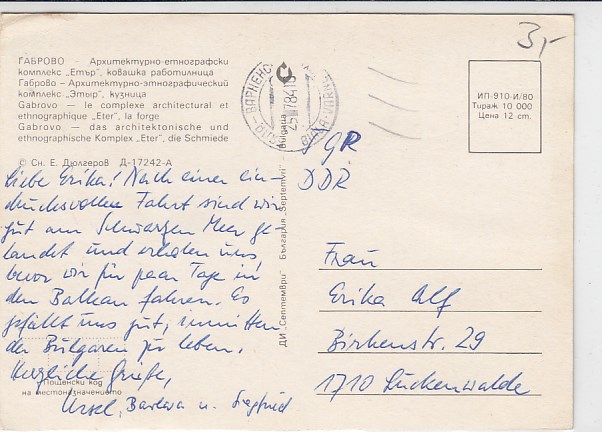 3,-
ГАБРОВО – Архитектурно-етнографски
комплекс „Етър", ковашка работилница
Габрово – Архитектурно-этнографический
комплекс „Этыр", кузница
Gabrovo — le complexe architectural et
ethnographique „Eter", la forge
Gabrovo — das architektonische und
ethnographische Komplex „Eter", die Schmiede
© Сн. Е. Дюлгеров Д-17242-А
ИП-910-И/80
Тираж 10 000
Цена 12 cm.
ДИ „Септември" България „Septemvri" Bulgaria
DDR
Liebe Erika! Nach einer ein-
drucksvollen Fahrt sind wir
gut am Schwarzen Meer ge-
landet und erholen uns,
bevor wir für paar Tage in
den Balkan fahren. Es
gefällt uns gut, inmitten
der Bulgaren zu leben.
Herzliche Grüße,
Ursel, Barbara u. Siegfried
Пощенски код
на местоназначението
Frau
Erika Alf
Birkenstr. 29
1710 Luckenwalde